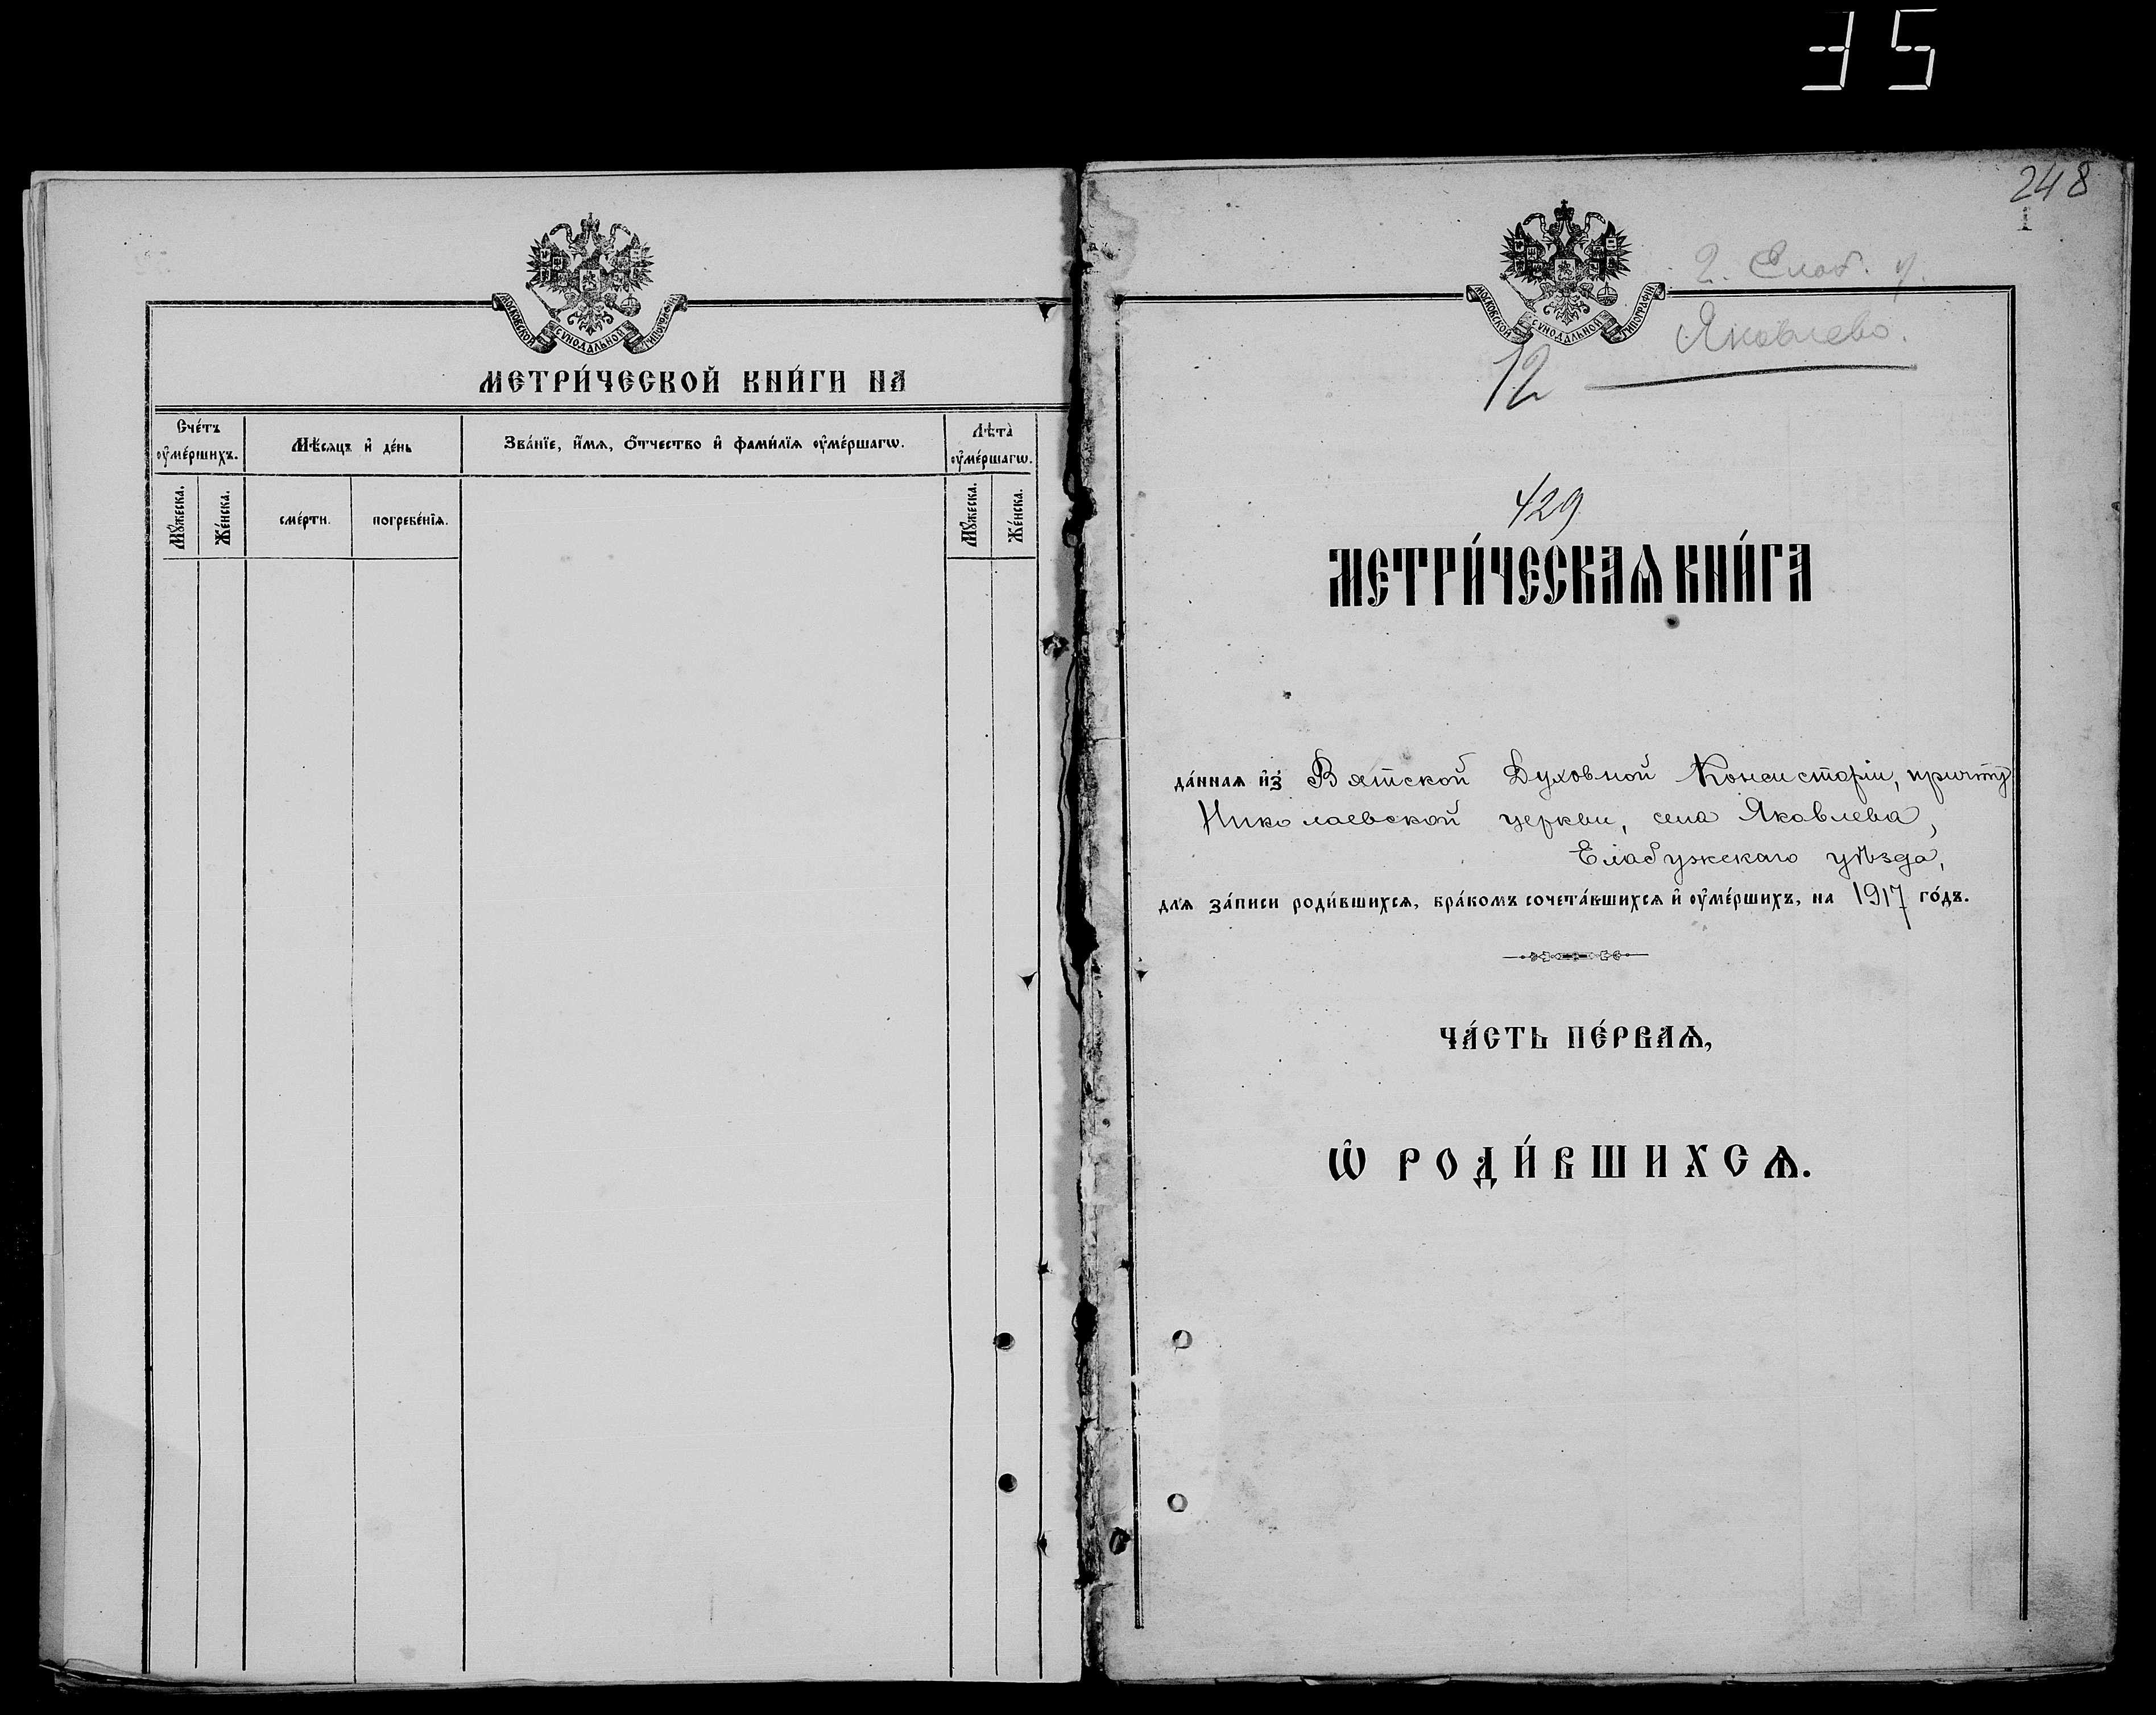 35
МОСКОВСКОЙ СѴНОДАЛЬНОЙ ТИПОГРАФІИ
МЕТРИ́ЧЕСКОЙ КНИ́ГИ НА
Сче́тъ ᲂу҆ме́ршихъ.
Мѣ́сяцъ и҆ де́нь
Зва́нїе, и҆́мѧ, ѻ҆́тчество и҆ фами́лїѧ ᲂу҆ме́ршагѡ.
Лѣта̀ ᲂу҆ме́ршагѡ.
Мꙋ́жеска.
Же́нска.
сме́рти.
погребе́нїѧ.
Мꙋ́жеска.
Же́нска.
248
1
МОСКОВСКОЙ СѴНОДАЛЬНОЙ ТИПОГРАФІИ
Яковлево.
12
429
МЕТРИ́ЧЕСКАѦ КНИ́ГА
да́ннаѧ и҆з̾ Вятской Духовной Консисторіи, причту
Николаевской церкви, села Яковлева,
Елабужскаго уѣзда,
длѧ̀ за́писи роди́вшихсѧ, бра́комъ сочета́вшихсѧ и҆ ᲂу҆ме́ршихъ, на 1917 го́дъ.
ЧА́СТЬ ПЕ́РВАѦ,
Ѽ РОДИ́ВШИХСѦ.